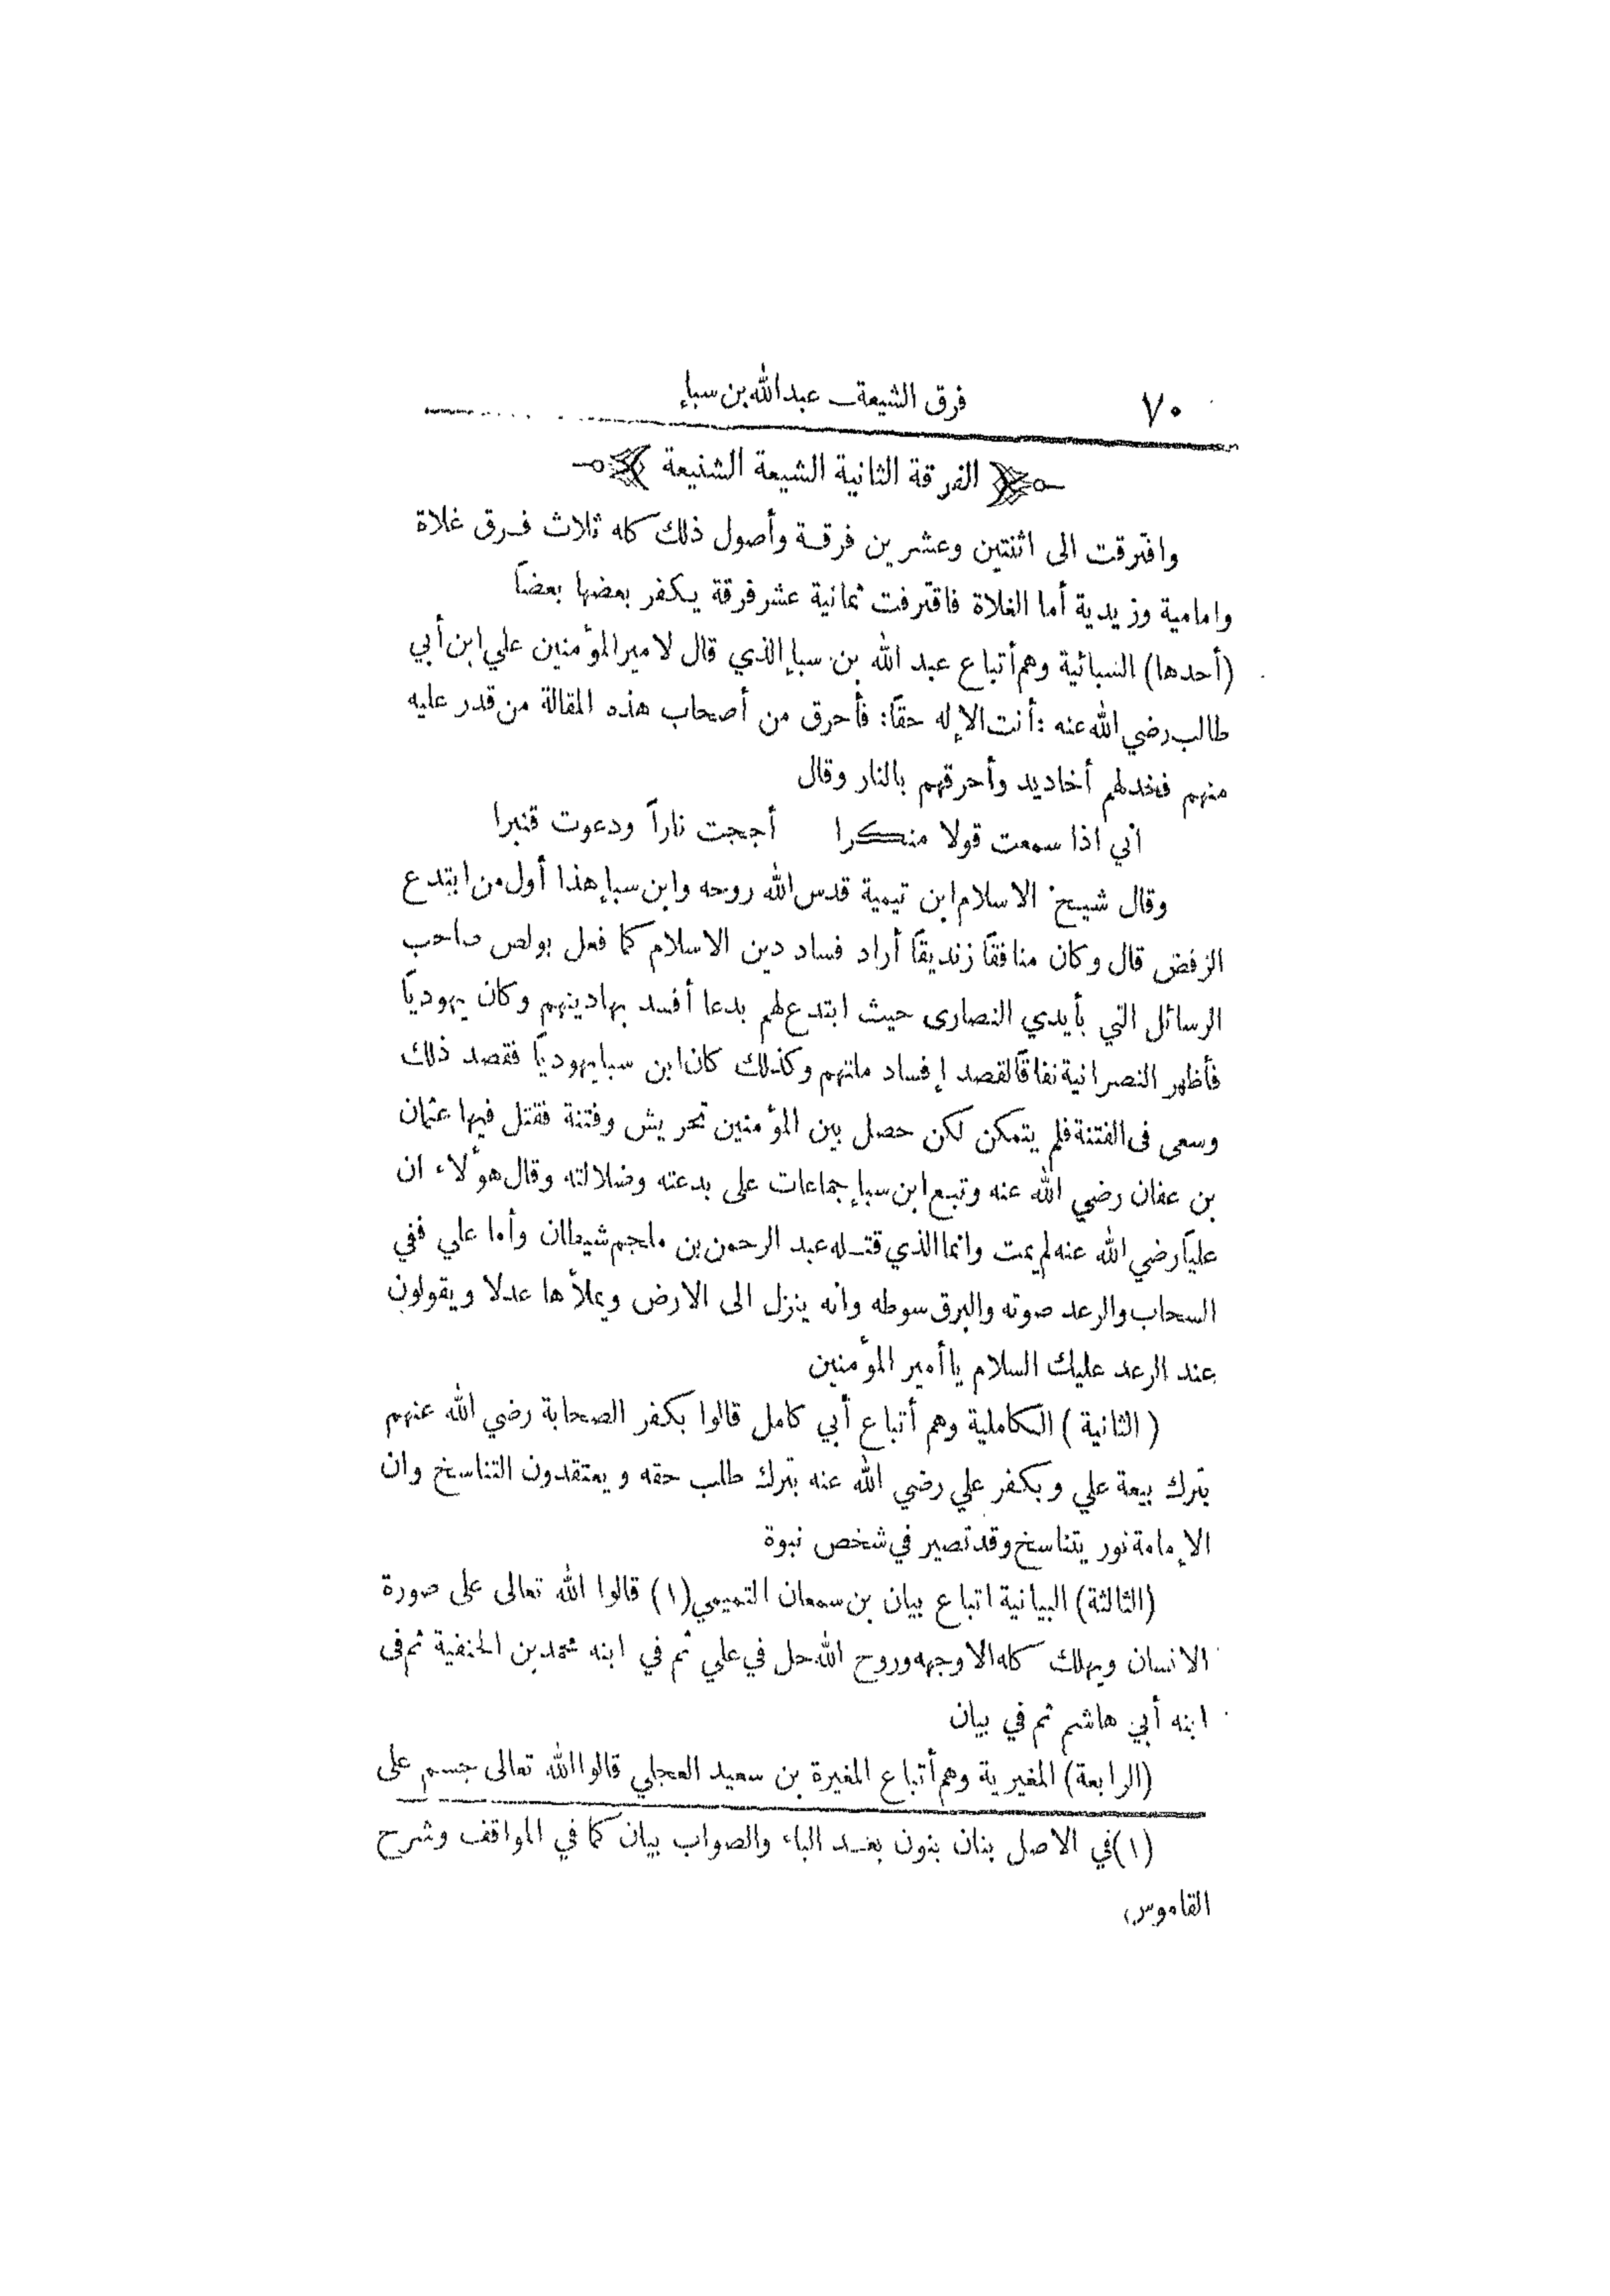 ٧٠
فرق الشيعة ـ عبد الله بن سبإ
الفرقة الثانية الشيعة الشنيعة
وافترقت الى اثنتين وعشرين فرقة وأصول ذلك كله ثلاث فرق غلاة
وامامية وزيدية أما الغلاة فافترفت ثمانية عشر فرقة يكفر بعضها بعضاً
(أحدها) السبائية وهم أتباع عبد الله بن سبإ الذي قال لامير المؤمنين علي ابن أبي
طالب رضي الله عنه : أنت الإله حقاً: فأحرق من أصحاب هذه المقالة من قدر عليه
منهم فخد لهم أخاديد وأحرقهم بالنار وقال
اني اذا سمعت قولا منكرا أججت ناراً ودعوت قنبرا
وقال شيخ الاسلام ابن تيمية قدس الله روحه وابن سبإ هذا أول من ابتدع
الرفض قال وكان منافقاً زنديقاً أراد فساد دين الاسلام كما فعل بولص صاحب
الرسائل التي بأيدي النصارى حيث ابتدع لهم بدعا أفسد بها دينهم وكان يهودياً
فأظهر النصرانية نفاقاً لقصد إفساد ملتهم وكذلك كان ابن سبا يهودياً فقصد ذلك
وسعى فى الفتنة فلم يتمكن لكن حصل بين المؤمنين تحريش وفتنة فقتل فيها عثمان
بن عفان رضي الله عنه وتبع ابن سبإ جماعات على بدعته وضلالته وقال هؤلاء ان
علياً رضي الله عنه لم يمت وانما الذي قتله عبد الرحمن بن ملجم شيطان وأما علي ففي
السحاب والرعد صوته والبرق سوطه وانه ينزل الى الارض ويملأها عدلا ويقولون
عند الرعد عليك السلام يا أمير المؤمنين
( الثانية ) الكاملية وهم أتباع أبي كامل قالوا بكفر الصحابة رضي الله عنهم
بترك بيعة علي وبكفر علي رضي الله عنه بترك طلب حقه ويعتقدون التناسخ وان
الإمامة نور يتناسخ وقد تصير في شخص نبوة
(الثالثة) البيانية اتباع بيان بن سمعان التميمي (١) قالوا الله تعالى على صورة
الانسان ويهلك كله الا وجهه وروح الله حل في علي ثم في ابنه محمد بن الحنفية ثم فى
ابنه أبي هاشم ثم في بيان
(الرابعة) المغيرية وهم أتباع المغيرة بن سعيد العجلي قالوا الله تعالى جسم على
(١) في الاصل بنان بنون بعد الباء والصواب بيان كما في المواقف وشرح
القاموس